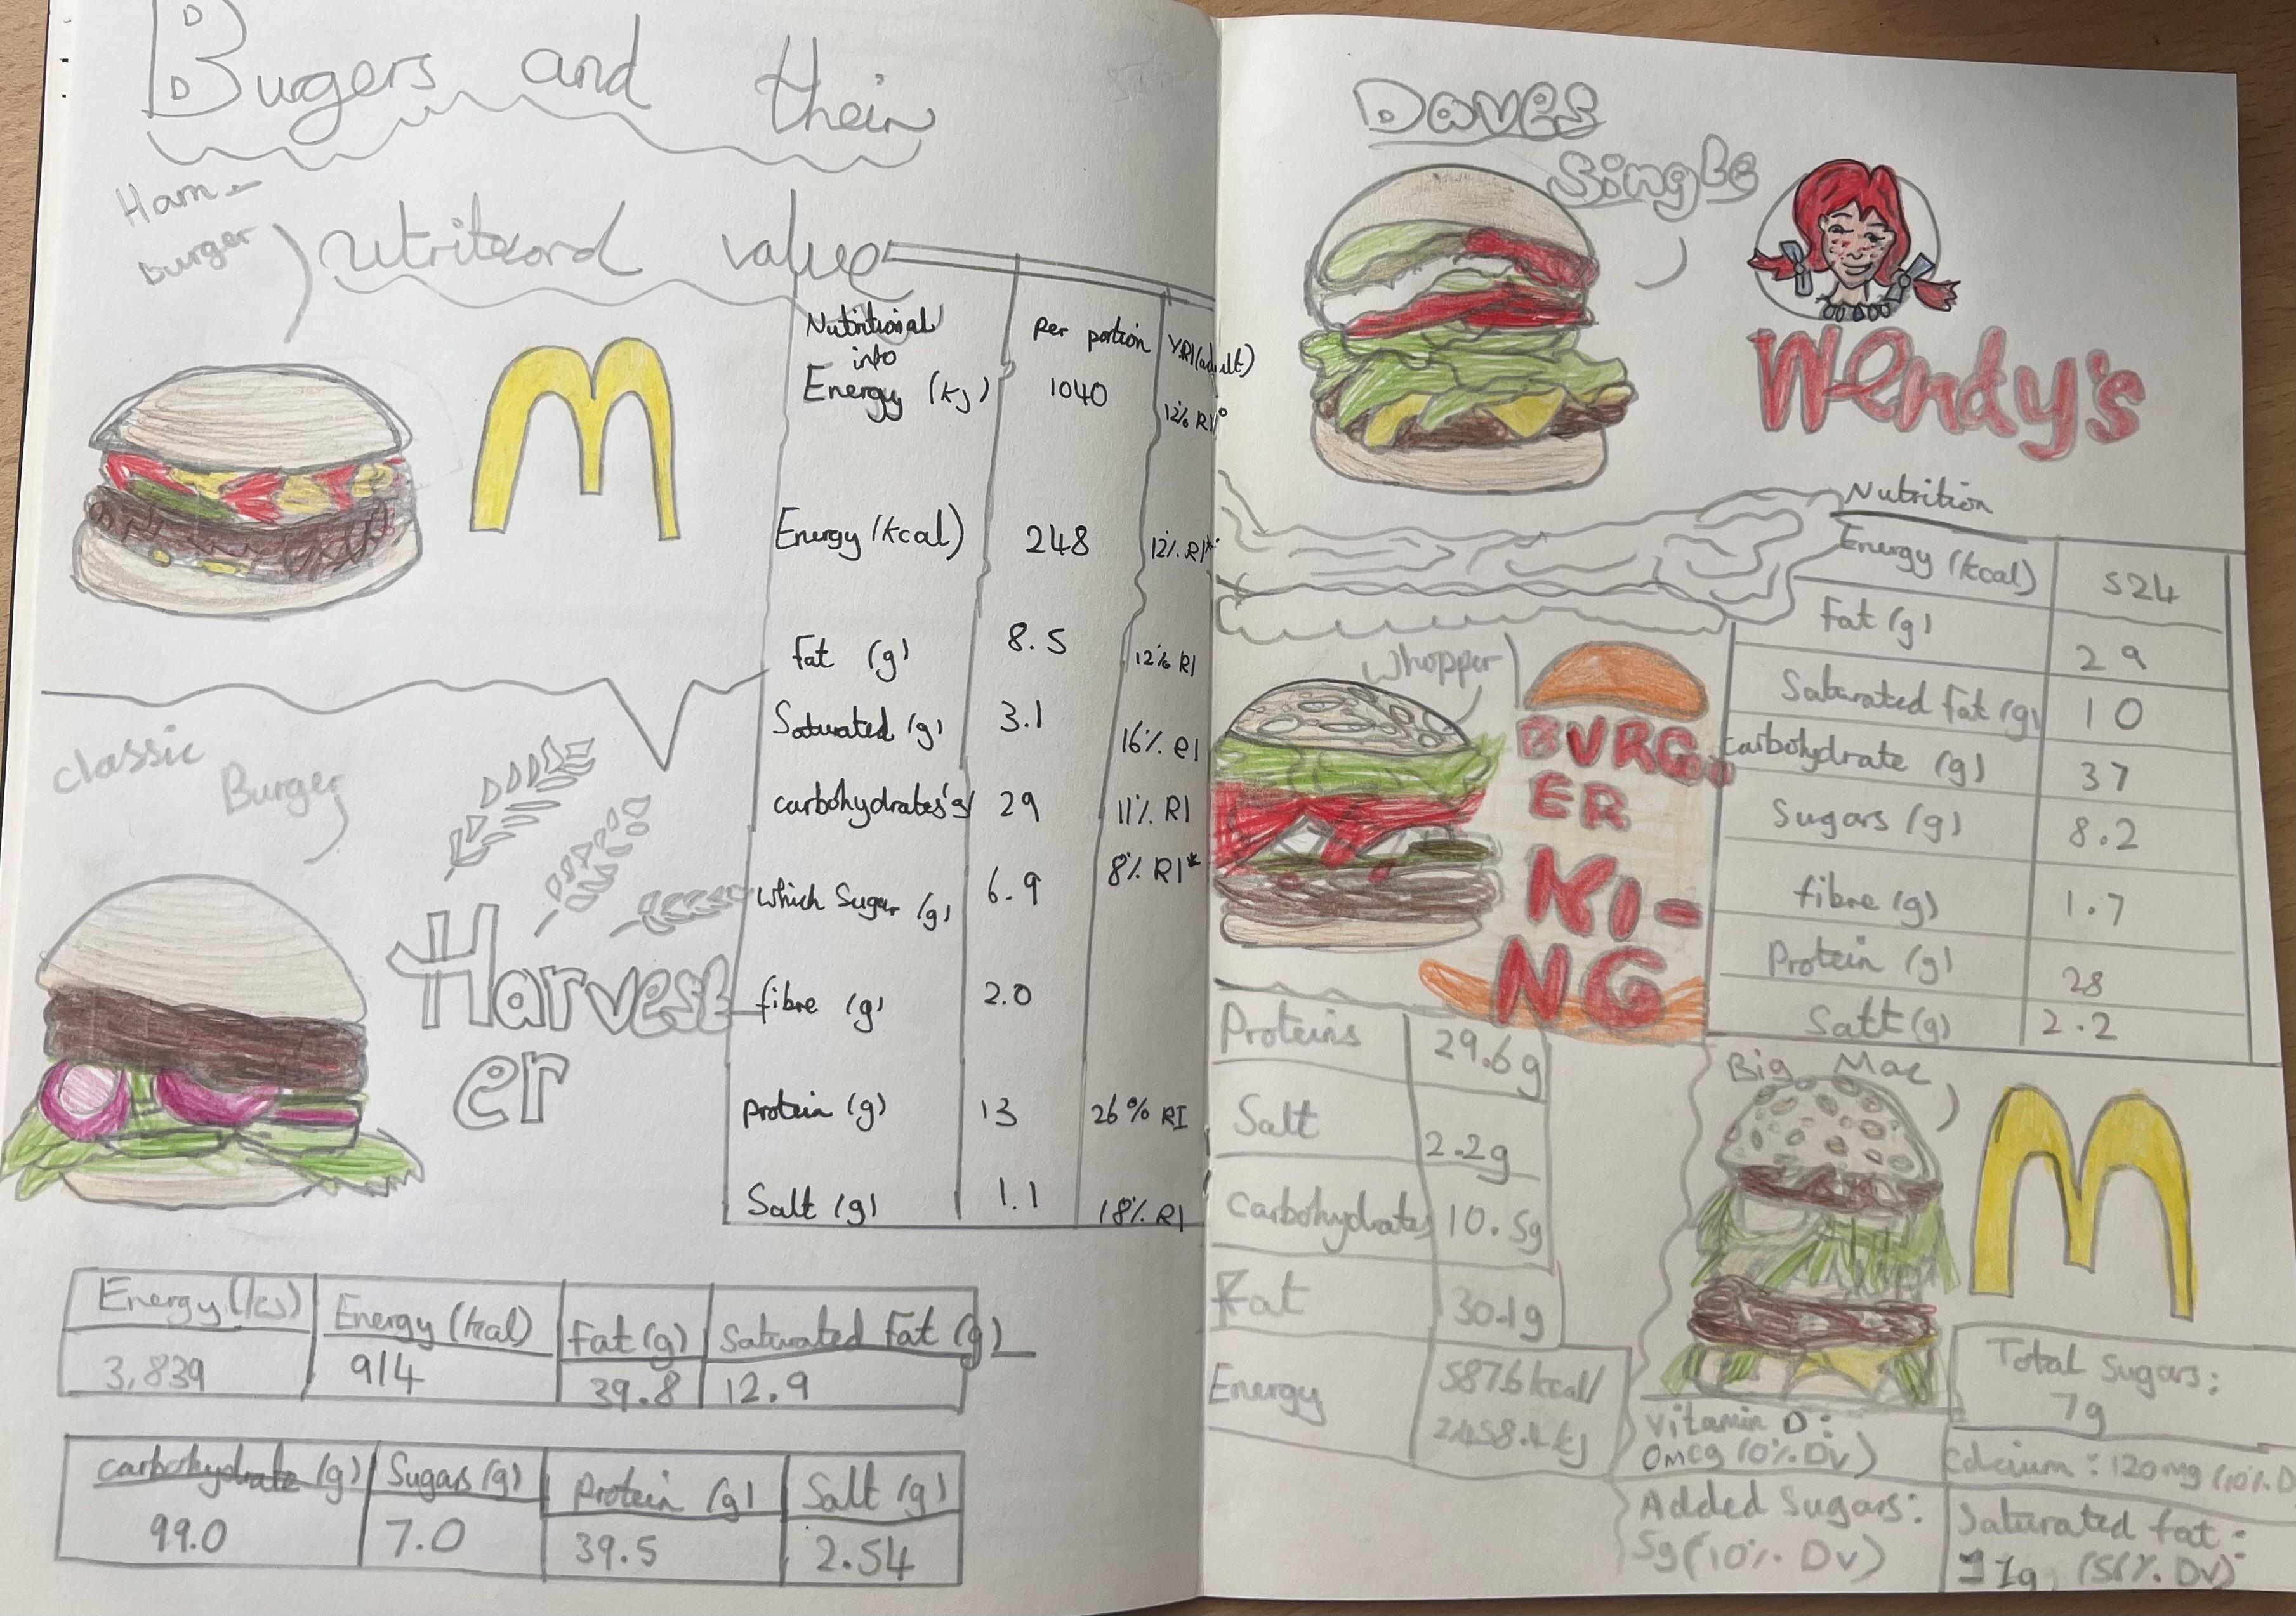 Burgers and their
Ham-
burger
nutriteond value
Nutritional
info
per portion
%RI(adult)
Energy (kj) 1040 12% RI°
Energy (kcal) 248 12% RI*
Fat (g) 8.5 12% RI
Saturated (g) 3.1 16% RI
carbohydrates's 29 11% RI
which Sugar (g) 6.9 8% RI*
fibre (g) 2.0
protein (g) 13 26% RI
Salt (g) 1.1 18% RI
M
classic
Burger
Harvest
er
Energy (kj) Energy (kcal) Fat (g) Saturated Fat (g)
3,839 914 39.8 12.9
carbohydrate (g) Sugars (g) Protein (g) Salt (g)
99.0 7.0 39.5 2.54
Daves
Single
Wendy's
Nutrition
Energy (kcal) 524
Fat (g) 29
Saturated Fat (g) 10
carbohydrate (g) 37
Sugars (g) 8.2
fibre (g) 1.7
Protein (g) 28
Salt (g) 2.2
Whopper
BURG
ER
KI-
NG
Proteins 29.6g
Salt 2.2g
Carbohydrates 10.5g
Fat 30.1g
Energy 587.6 kcal/
2458.4 kj
Big Mac
M
Total Sugars:
7g
Vitamin D:
0mcg (0% Dv)
Calcium: 120mg (10% D
Added Sugars:
5g (10% Dv)
Saturated fat:
11g (56% Dv)